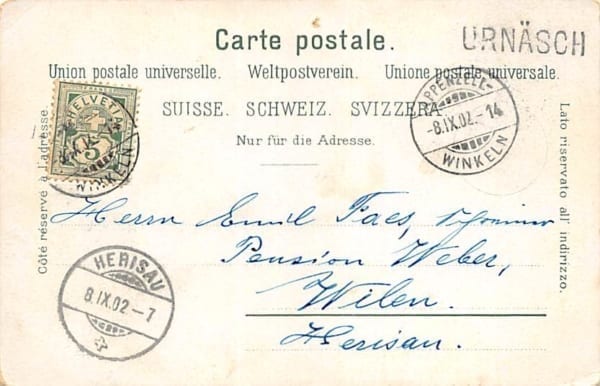 Carte postale.
URNÄSCH
Union postale universelle. Weltpostverein. Unione postale universale.
SUISSE. SCHWEIZ. SVIZZERA.
Nur für die Adresse.
Côté réservé à l'adresse.
Lato riservato all' indirizzo.
HELVETIA
5
WINKELN
APPENZELL-
-8.IX.02.-14
WINKELN
Herrn Emil Faes, Schreiner
Pension Weber,
Wilen.
Herisau.
HERISAU
8.IX.02-7